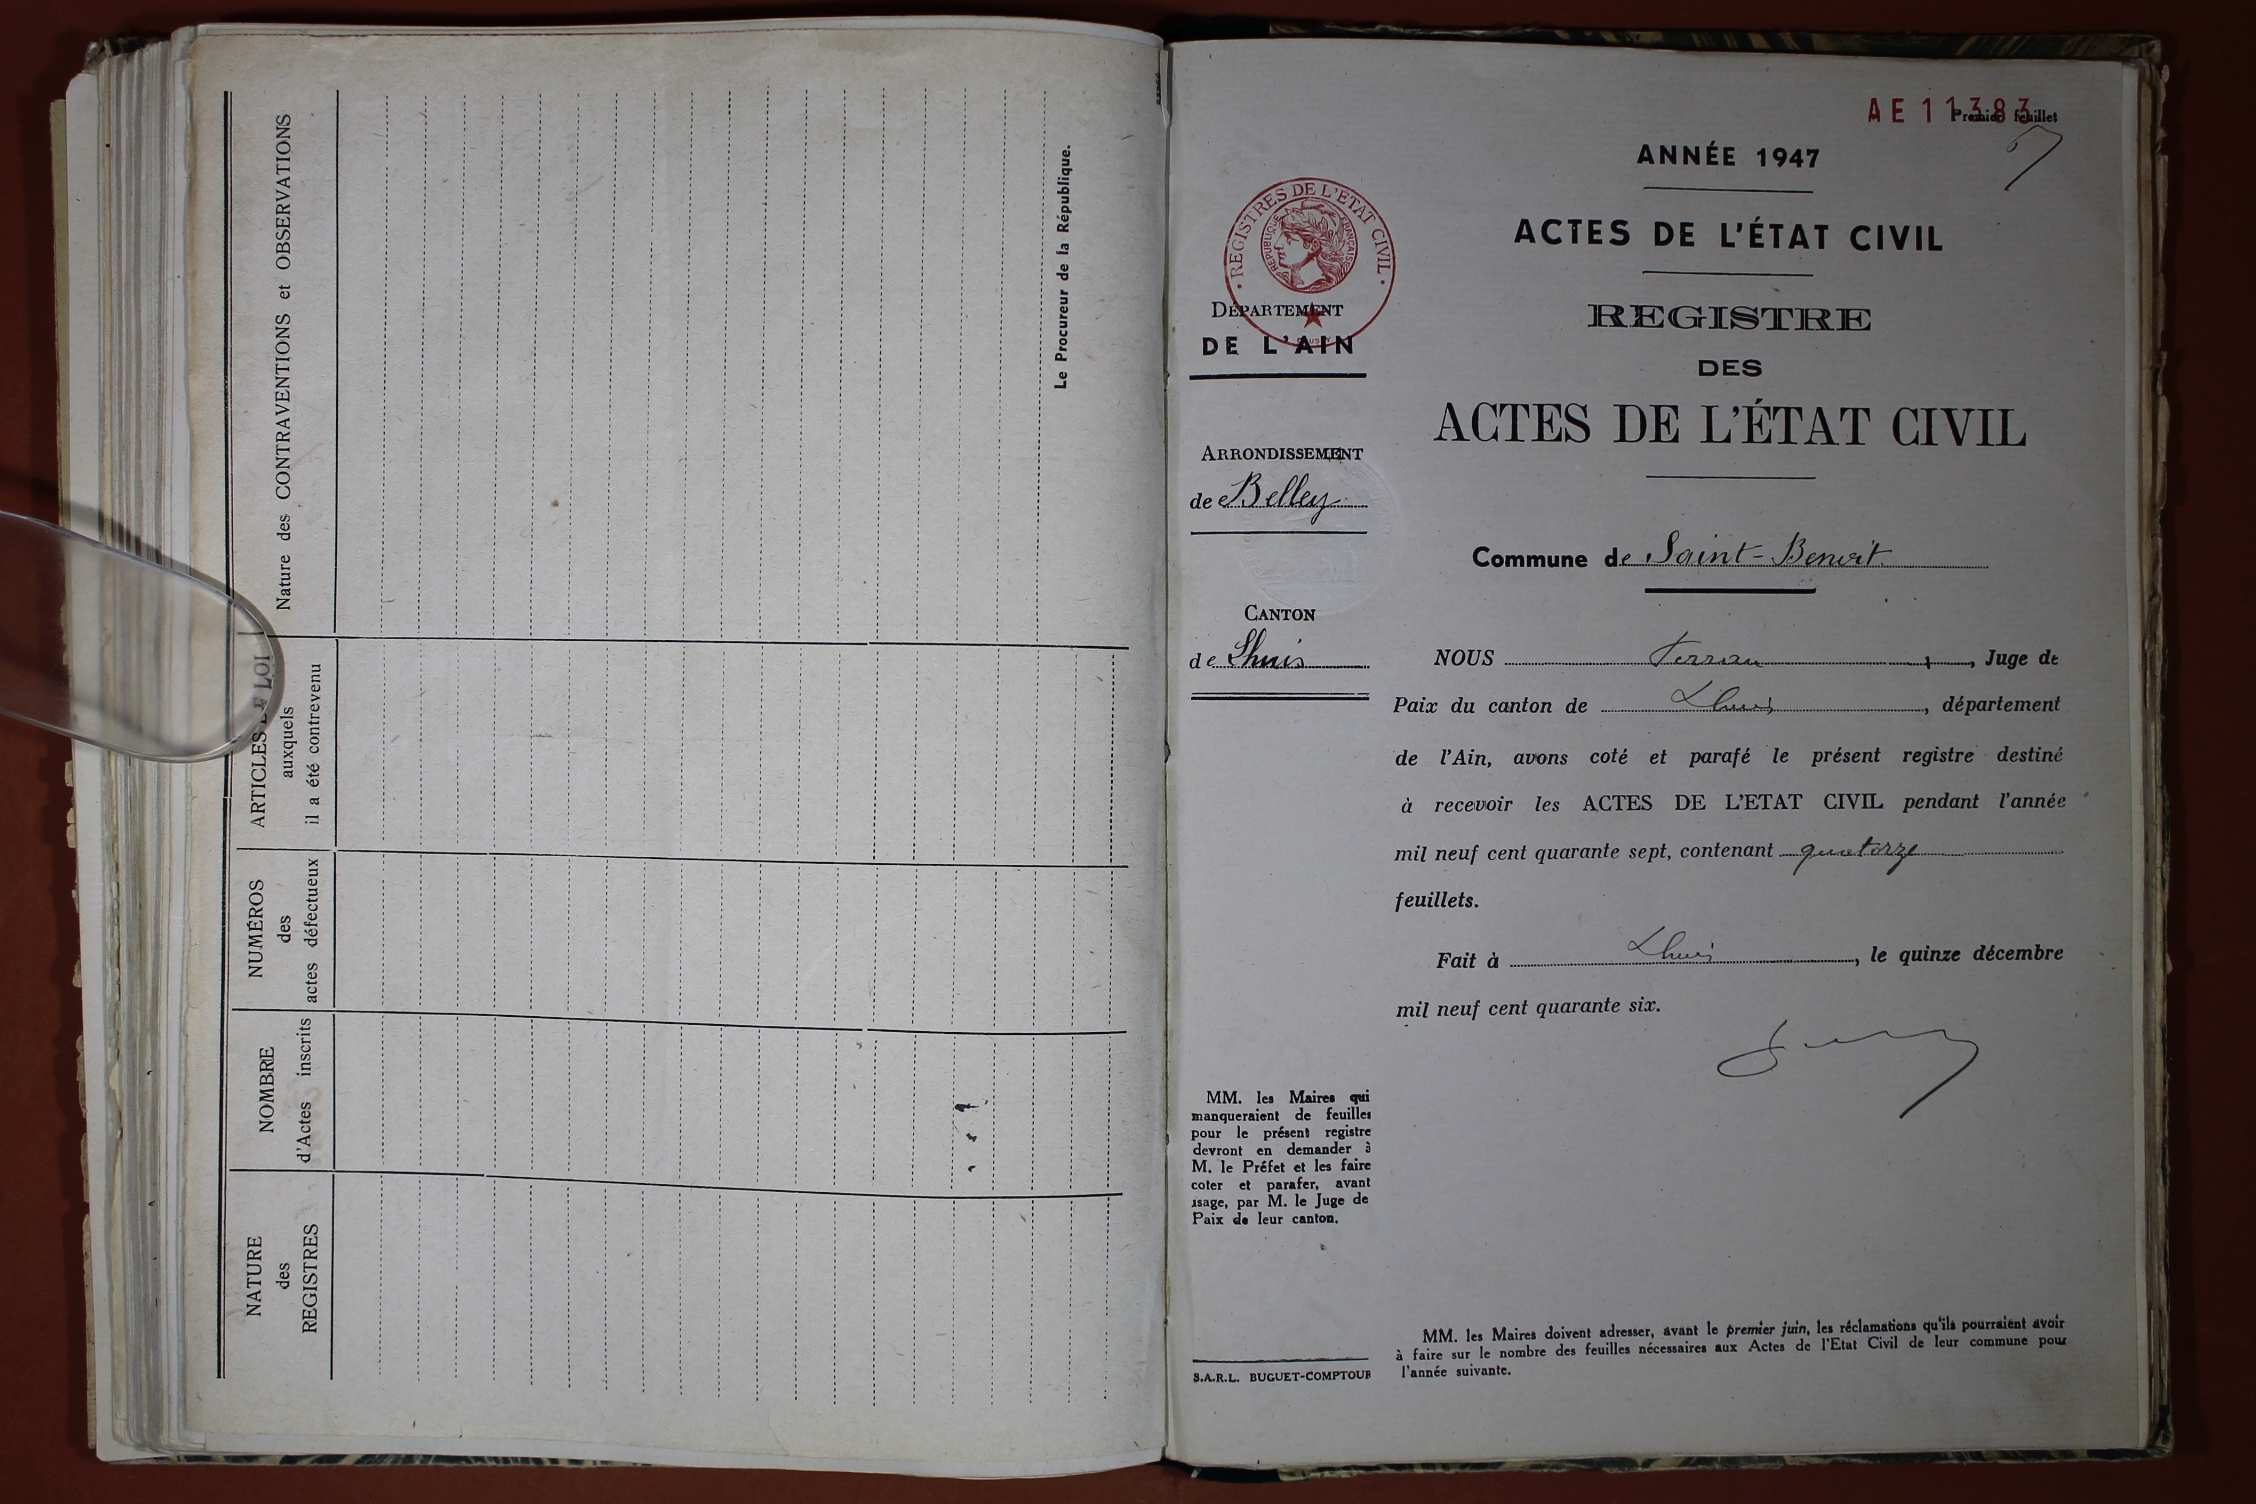 NATURE
des
REGISTRES
NOMBRE
d'Actes inscrits
NUMÉROS
des
actes défectueux
ARTICLES DE LOI
auxquels
il a été contrevenu
Nature des CONTRAVENTIONS et OBSERVATIONS
Le Procureur de la République.
AE 11383
Premier feuillet
ANNÉE 1947
ACTES DE L'ÉTAT CIVIL
REGISTRE
DES
ACTES DE L'ÉTAT CIVIL
Commune de Saint-Benoit
REGISTRES DE L'ÉTAT CIVIL
REPUBLIQUE FRANÇAISE
DÉPARTEMENT
DE L'AIN
ARRONDISSEMENT
de Belley
CANTON
de Lhuis
NOUS , Juge de
Paix du canton de Lhuis, département
de l'Ain, avons coté et parafé le présent registre destiné
à recevoir les ACTES DE L'ETAT CIVIL pendant l'année
mil neuf cent quarante sept, contenant quatorze
feuillets.
Fait à Lhuis, le quinze décembre
mil neuf cent quarante six.
MM. les Maires qui
manqueraient de feuilles
pour le présent registre
devront en demander à
M. le Préfet et les faire
coter et parafer, avant
usage, par M. le Juge de
Paix de leur canton.
S.A.R.L. BUGUET-COMPTOUR
MM. les Maires doivent adresser, avant le premier juin, les réclamations qu'ils pourraient avoir
à faire sur le nombre des feuilles nécessaires aux Actes de l'Etat Civil de leur commune pour
l'année suivante.